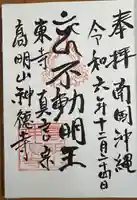 奉拝 南国沖縄
令和六年十二月二十四日
不動明王
東寺真言宗
高明山神徳寺